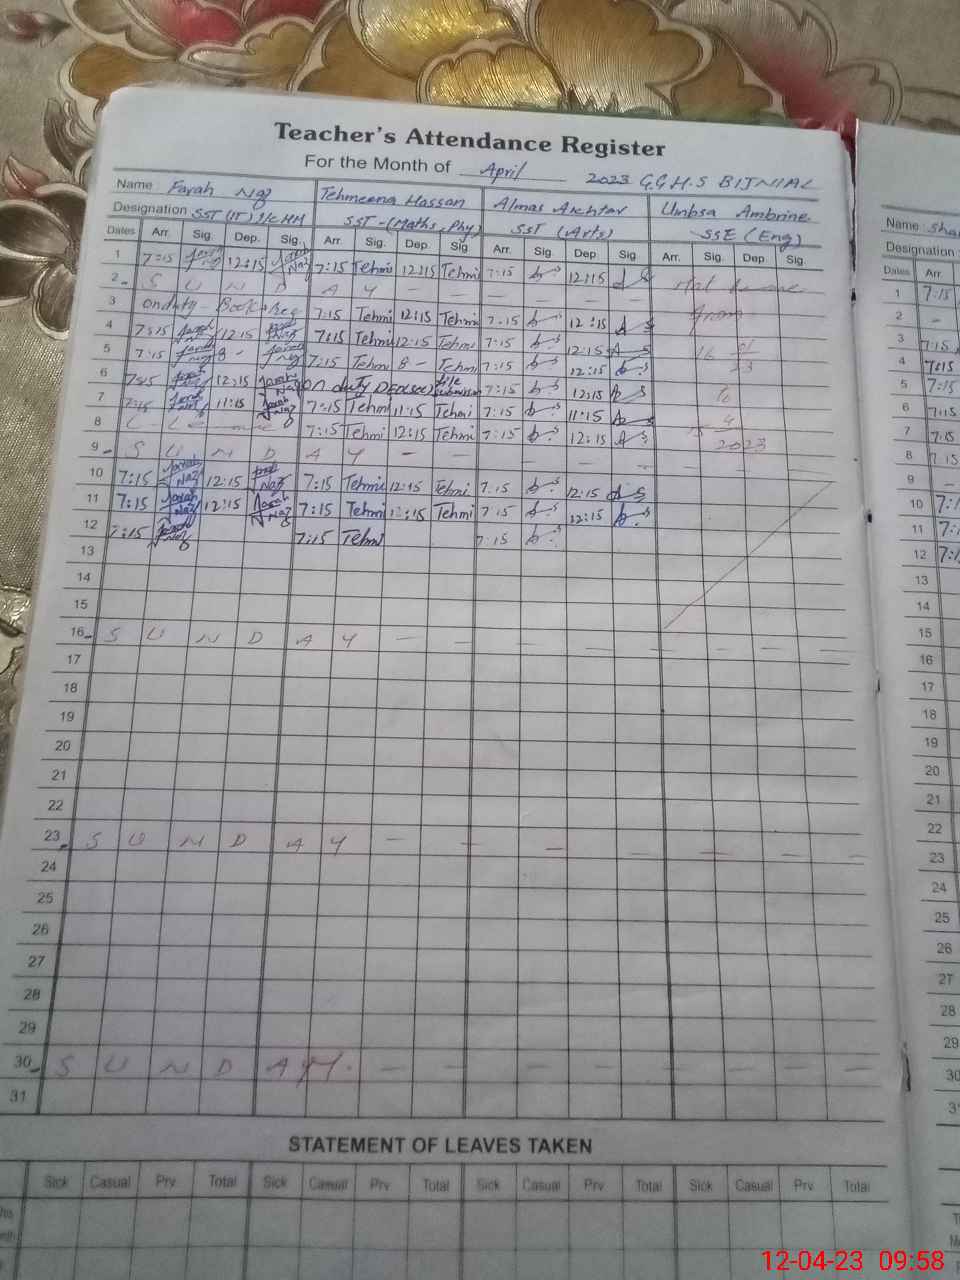 Teacher's Attendance Register
For the Month of April 2023 G.G.H.S BIJNIAL
Name Farah Naz Tehmeena Hassan Almas Akhtar Umbsa Ambrine
Designation SST (IT) I/C HM SST-(Maths, Phy) SST (Arts) SSE (Eng)
Dates Arr. Sig. Dep. Sig. Arr. Sig. Dep. Sig. Arr. Sig. Dep. Sig. Arr. Sig. Dep. Sig.
1 7:15 Farah Naz 12:15 Farah Naz 7:15 Tehmi 12:15 Tehmi 7:15 12:15
2 S U N D A Y - - - - - -
3 onduty - Book 7:15 Tehmi 12:15 Tehmi 7:15 12:15 from
4 7:15 Farah Naz 12:15 Farah Naz 7:15 Tehmi 12:15 Tehmi 7:15 12:15
5 7:15 Farah Naz 8 - Farah Naz 7:15 Tehmi 8 - Tehmi 7:15 12:15
6 7:15 Farah Naz 12:15 Farah Naz On duty 7:15 12:15 to
7 7:15 Farah Naz 11:15 Farah Naz 7:15 Tehmi 11:15 Tehmi 7:15 11:15
8 7:15 Tehmi 12:15 Tehmi 7:15 12:15 15 4 2023
9 S U N D A Y - - - - - -
10 7:15 Farah Naz 12:15 Farah Naz 7:15 Tehmi 12:15 Tehmi 7:15 12:15
11 7:15 Farah Naz 12:15 Farah Naz 7:15 Tehmi 12:15 Tehmi 7:15 12:15
12 7:15 Farah Naz 7:15 Tehmi 7:15
13
14
15
16 S U N D A Y - - - - - - -
17
18
19
20
21
22
23 S U N D A Y - - - - - -
24
25
26
27
28
29
30 S U N D A Y - - - - - - -
31
STATEMENT OF LEAVES TAKEN
Sick Casual Prv. Total Sick Casual Prv. Total Sick Casual Prv. Total Sick Casual Prv. Total
Name
Designation
Dates Arr.
1 7:15
2 -
3 7:15
4 7:15
5 7:15
6 7:15
7 7:15
8 7:15
9 -
10
11
12
13
14
15
16
17
18
19
20
21
22
23
24
25
26
27
28
29
30
12-04-23 09:58